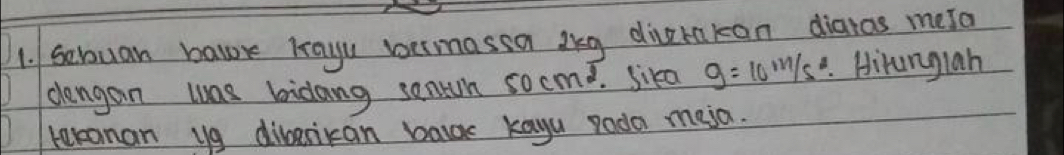 1. Sebuah balok kayu bermassa 2kg diletakan diatas meja
dengan luas bidang sentuh 50 cm². Jika g = 10 m/s². Hitunglah
tekanan yg diberikan balok kayu pada meja.